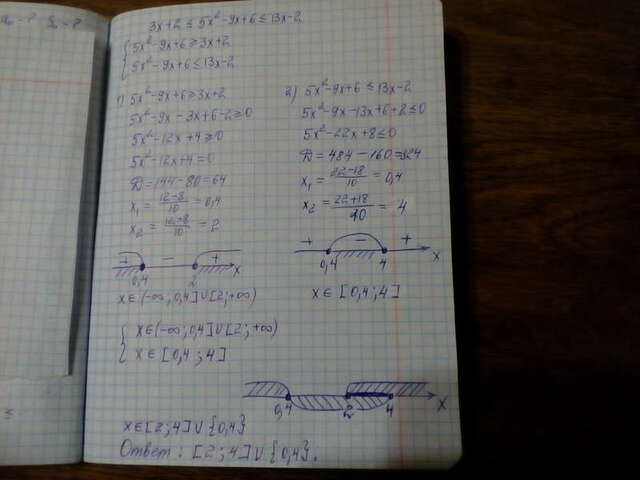 3x+2 ≤ 5x²-9x+6 ≤ 13x-2
{ 5x²-9x+6 ≥ 3x+2
{ 5x²-9x+6 ≤ 13x-2
1) 5x²-9x+6 ≥ 3x+2
5x²-9x-3x+6-2 ≥ 0
5x²-12x+4 ≥ 0
5x²-12x+4=0
D=144-80=64
x₁ = (12-8)/10 = 0,4
x₂ = (12+8)/10 = 2
+ - +
0,4 2 x
x∈(-∞;0,4]∪[2;+∞)
2) 5x²-9x+6 ≤ 13x-2
5x²-9x-13x+6+2 ≤ 0
5x²-22x+8 ≤ 0
D=484-160=324
x₁ = (22-18)/10 = 0,4
x₂ = (22+18)/10 = 4
+ - +
0,4 4 x
x∈[0,4;4]
{ x∈(-∞;0,4]∪[2;+∞)
{ x∈[0,4;4]
0,4 2 4 x
x∈[2;4]∪{0,4}
Ответ: [2;4]∪{0,4}.